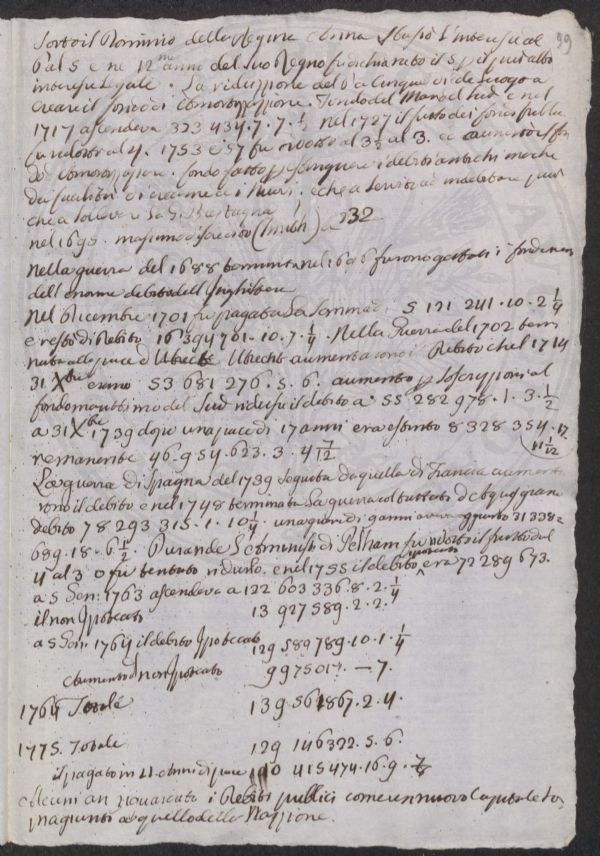 99
Sotto il Dominio della Regina Anna l'interesse al
6 al 5 e ne 12 anni del suo Regno fu dichiarato il 5 p
interesse legale. La riduzzione del 6 a Cinque diede luogo a
creare il fondo di Ammortizzazione. Fondo del Mare del Sud e nel
1717 ascendeva 323 434.7.7.½ nel 1727 il frutto dei fondi
fu ridotto al 4. 1753 e 57 fu ridotto al 3½ al 3. ed aumentossi
do di Ammortizazione. fondo fatto p estinguere i debiti antichi
da e che a servito ad indebitare
che a sollevare la G. Brettagna
nel 1695. (Smith) a 232
Nella guerra del 1688 terminata nel 1696 furono gettati i fondamen
dell'enorme debito dell'Inghilterra
Nel Dicembre 1701 fu pagata la Somma di 5 121 241.10.2¼
e restò di Debito 16 394 701.10.7.¼. Nella Guerra del 1702 term
nata alla pace d'Utrecht Utrecht aumentarono i Debiti che il 1714
31 Xbre erano 53 681 276.5.6. aumentò p soscrizzioni al
fondo marittimo del Sud ridusse il debito a 55 282 978.1.3.½
a 31 Xbre 1739 dopo una pace di 17 anni era estinto 8 328 354.17.
11/12
remanente 46.954.623.3.4 7/12
La guerra di Spagna del 1739 seguita da quella di Francia aument
rono il debito e nel 1748 terminata la guerra col trattato d'Aquisgrana
debito 78 293 313.1.10¾. una guerra di 9 anni aveva aggiunto 31 338
689.18.6½. Durande l'Aministro di Pelham fu ridotto il frutto dal
4 al 3 o fu tentato ridurlo. e nel 1755 il debito ipotecato era 72 289 673.
a 5 Gen. 1763 ascendeva a 122 603 336.8.2.¼
il non Ipotecato 13 927 589.2.2.
a 5 Gen. 1764 il debito Ipotecato 129 589 789.10.1.¼
Aumento di non Ipotecato 9975017. — 7.
1764 Totale 139.561867.2.4.
1775. Totale 129 146322.5.6.
il pagato in 11 Anni di pace 10 415 474.16.9.⅞
Alcuni an riguardato i Debiti pubblici come un nuovo Capitale so
pragiunto a quello della Nazzione.